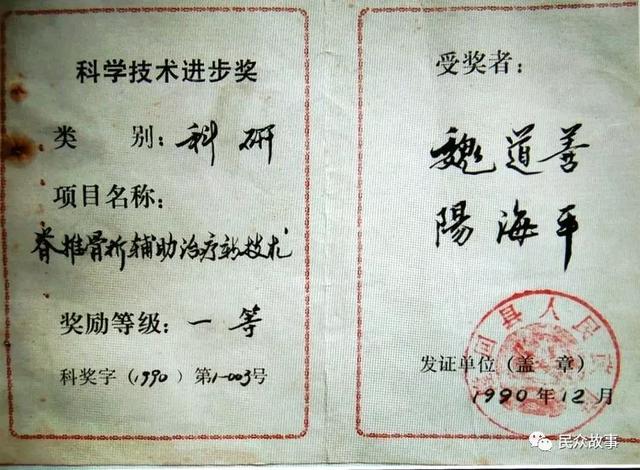 科学技术进步奖
类 别：科研
项目名称：
脊椎骨折辅助治疗新技术
奖励等级：一等
科奖字（1990）第1-003号
受奖者：
魏道善
陽海平
县人民
发证单位（盖 章）
1990年12月
民众故事